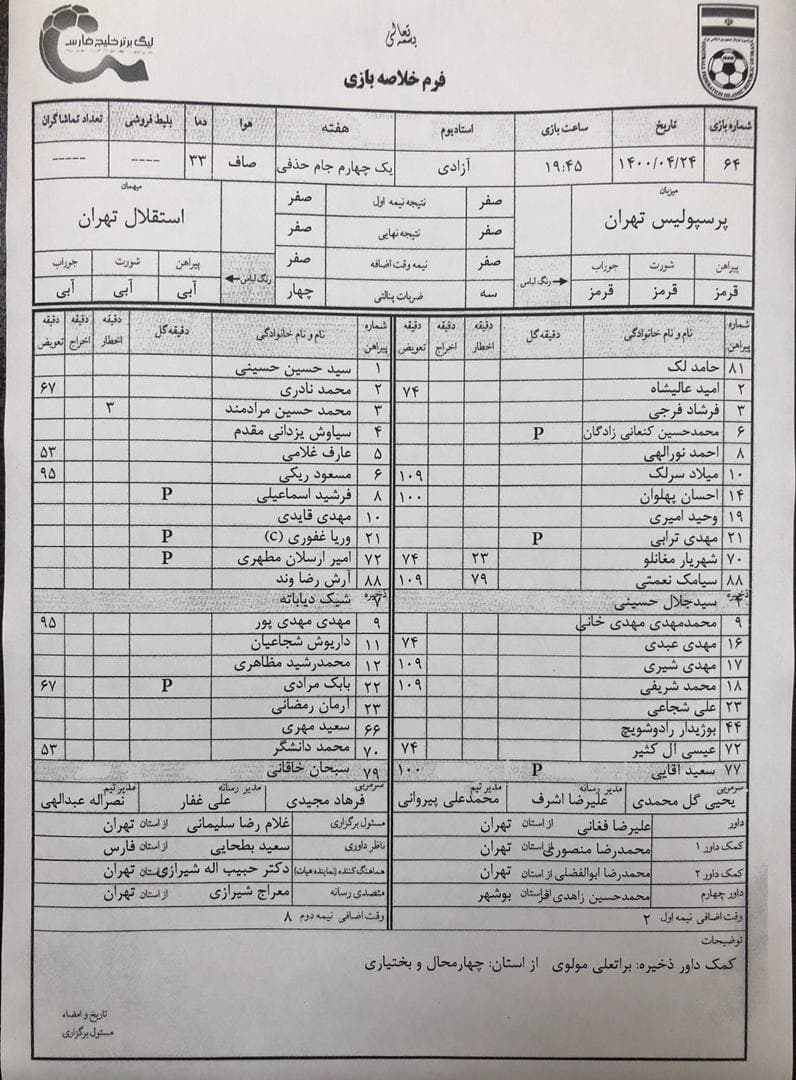 بسمه تعالی
لیگ برتر خلیج فارس
FOOTBALL FEDERATION ISLAMIC REPUBLIC OF IRAN
فرم خلاصه بازی
شماره بازی تاریخ ساعت بازی استادیوم هفته هوا دما بلیط فروشی تعداد تماشاگران
۶۴ ۱۴۰۰/۰۴/۲۴ ۱۹:۴۵ آزادی یک چهارم جام حذفی صاف ۳۳ ---- -----
میزبان
پرسپولیس تهران
میهمان
استقلال تهران
صفر نتیجه نیمه اول صفر
صفر نتیجه نهایی صفر
صفر نیمه وقت اضافه صفر
سه ضربات پنالتی چهار
پیراهن شورت جوراب رنگ لباس
قرمز قرمز قرمز
رنگ لباس پیراهن شورت جوراب
آبی آبی آبی
شماره پیراهن نام و نام خانوادگی دقیقه گل دقیقه اخطار دقیقه اخراج دقیقه تعویض
۸۱ حامد لک
۲ امید عالیشاه ۷۴
۳ فرشاد فرجی
۶ محمدحسین کنعانی زادگان P
۸ احمد نورالهی
۱۰ میلاد سرلک ۱۰۹
۱۴ احسان پهلوان ۱۰۰
۱۹ وحید امیری
۲۱ مهدی ترابی P
۷۰ شهریار مغانلو ۲۳ ۷۴
۸۸ سیامک نعمتی ۷۹ ۱۰۹
ذخیره
۴ سیدجلال حسینی
۹ محمدمهدی مهدی خانی
۱۶ مهدی عبدی ۷۴
۱۷ مهدی شیری ۱۰۹
۱۸ محمد شریفی ۱۰۹
۲۳ علی شجاعی
۴۴ بوژیدار رادوشویچ
۷۲ عیسی ال کثیر ۷۴
۷۷ سعید آقایی P ۱۰۰
سرمربی یحیی گل محمدی مدیر رسانه علیرضا اشرف مدیر تیم محمدعلی پیروانی
شماره پیراهن نام و نام خانوادگی دقیقه گل دقیقه اخطار دقیقه اخراج دقیقه تعویض
۱ سید حسین حسینی
۲ محمد نادری ۶۷
۳ محمد حسین مرادمند ۳
۴ سیاوش یزدانی مقدم
۵ عارف غلامی ۵۳
۶ مسعود ریکی ۹۵
۸ فرشید اسماعیلی P
۱۰ مهدی قایدی
۲۱ وریا غفوری (C) P
۷۲ امیر ارسلان مطهری P
۸۸ آرش رضا وند
ذخیره
۷ شیک دیاباته
۹ مهدی مهدی پور ۹۵
۱۱ داریوش شجاعیان
۱۲ محمدرشید مظاهری
۲۲ بابک مرادی P ۶۷
۲۳ آرمان رمضانی
۶۶ سعید مهری
۷۰ محمد دانشگر ۵۳
۷۹ سبحان خاقانی
سرمربی فرهاد مجیدی مدیر رسانه علی غفار مدیر تیم نصراله عبدالهی
داور علیرضا فغانی از استان تهران
کمک داور ۱ محمدرضا منصوری از استان تهران
کمک داور ۲ محمدرضا ابوالفضلی از استان تهران
داور چهارم محمدحسین زاهدی از استان بوشهر
وقت اضافی نیمه اول ۲
مسئول برگزاری غلام رضا سلیمانی از استان تهران
ناظر داوری سعید بطحایی از استان فارس
هماهنگ کننده (نماینده هیات) دکتر حبیب اله شیرازی از استان تهران
متصدی رسانه معراج شیرازی از استان تهران
وقت اضافی نیمه دوم ۸
توضیحات
کمک داور ذخیره: براتعلی مولوی از استان: چهارمحال و بختیاری
تاریخ و امضاء
مسئول برگزاری